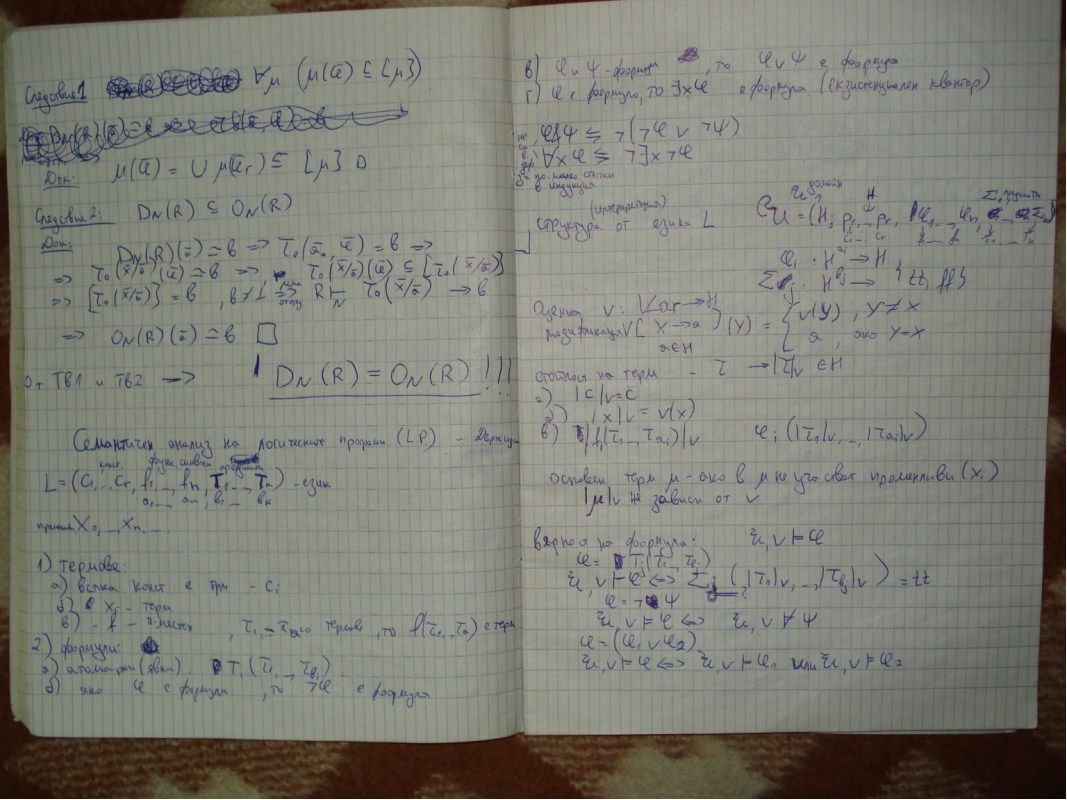 Следствие 1 ∀μ (μ(ū) ⊆ [μ])
Док: μ(ū) = ∪ μ(ūr) ⊆ [μ] □
Следствие 2: DN(R) ⊆ ON(R)
Док:
DN(R)(ā) ≃ b => τ0(ā, ū) ≃ b =>
=> τ0(x̄/ā)(ū) ≃ b => τ0(x̄/ā)(ū) ⊆ [τ0(x̄/ā)]
=> [τ0(x̄/ā)] ≃ b, b≠⊥ => R ⊢N τ0(x̄/ā) → b
=> ON(R)(ā) ≃ b □
От ТВ1 и ТВ2 → ! DN(R) = ON(R) !!!
Семантичен анализ на логическите програми (LP)
конст. функ. символи
L = (c1,.., cr, f1,.., fn, T1,.., Tk) - език
a1,.., an, b1,.., bk
X0,.., Xn,..
1) термове:
а) всяка конст е терм - ci
б) xi - терм
в) f - местен, τ1,.. термове, то f(τ1,.. τa) е терм
2) формули:
а) атомарни Ti (τ1,.., τbi)
б) ако φ е формула, то ¬φ е формула
в) φ и ψ - форми, то φ∨ψ е формула
г) φ е формула, то ∃xφ е формула (екзистенциален квантор)
φ&ψ ≤ ¬(¬φ ∨ ¬ψ)
∀xφ ≤ ¬∃x¬φ
по малко стъпки
в индукция
(интерпретация)
структура от езика L
φi : H^ai → H
Σj : H^bj → {tt, ff}
Оценка v: Var → H
модификация v[x→a](y) = { v(y), y≠x
a∈H a, ако y=x
стойност на терм - τ → |τ|v ∈ H
а) |c|v = c
б) |x|v = v(x)
в) |fi(τ1.. τai)|v φi(|τ1|v,.., |τai|v)
основен терм μ - ако в μ не участват променливи (xi)
|μ|v не зависи от v
вярност на формула: 𝔄, v ⊨ φ
φ = Ti(τ1,.. τbi)
𝔄, v ⊨ φ <-> Σj (|τ1|v,.., |τbj|v) = tt
φ = ¬ψ
𝔄, v ⊨ φ <=> 𝔄, v ⊭ ψ
φ = (φ1 ∨ φ2)
𝔄, v ⊨ φ <=> 𝔄, v ⊨ φ1 или 𝔄, v ⊨ φ2